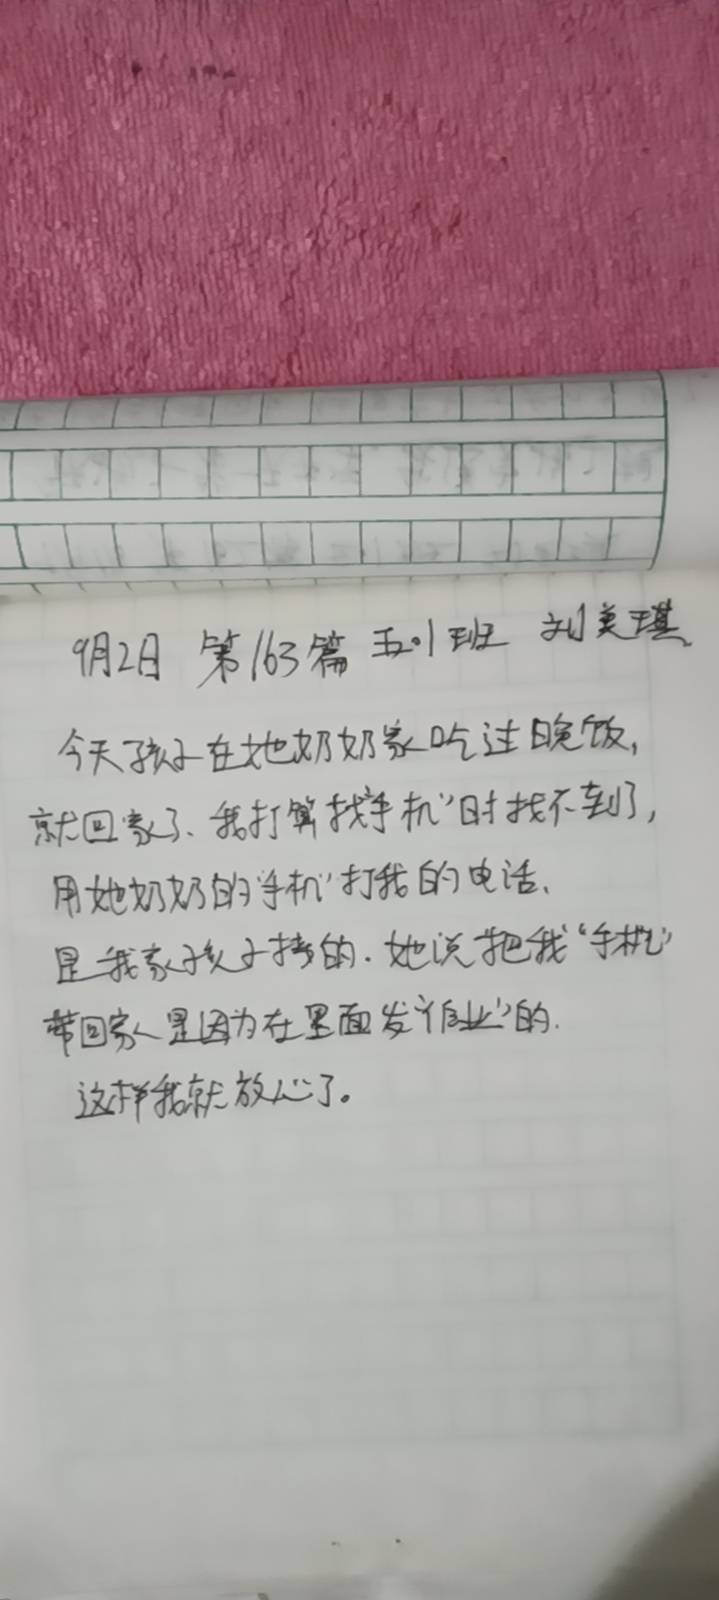 9月2日 第163篇 五.1班 刘美琪
今天孩子在她奶奶家吃过晚饭，
就回家了、我打算找“手机”时找不到了，
用她奶奶的“手机”打我的电话、
是我家孩子接的.她说把我“手机”
带回家是因为在里面发“作业”的.
这样我就放心了。